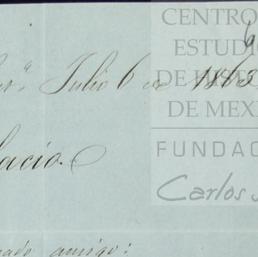 CENTRO
ESTUDI
DE
DE MEXI
FUNDAC
Carlos S
Julio 6 de 1865
lacio.
amigo: